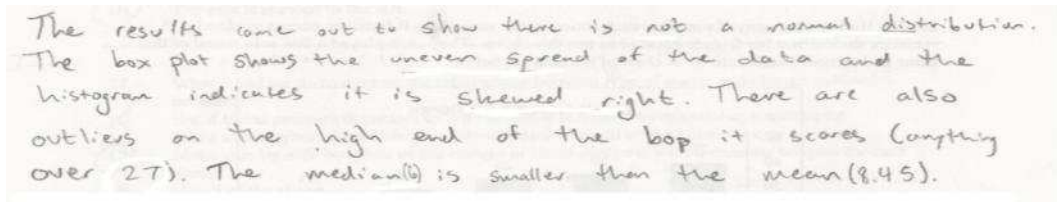 The results come out to show there is not a normal distribution.
The box plot shows the uneven spread of the data and the
histogram indicates it is skewed right. There are also
outliers on the high end of the bop it scores (anything
over 27). The median(6) is smaller than the mean(8.45).